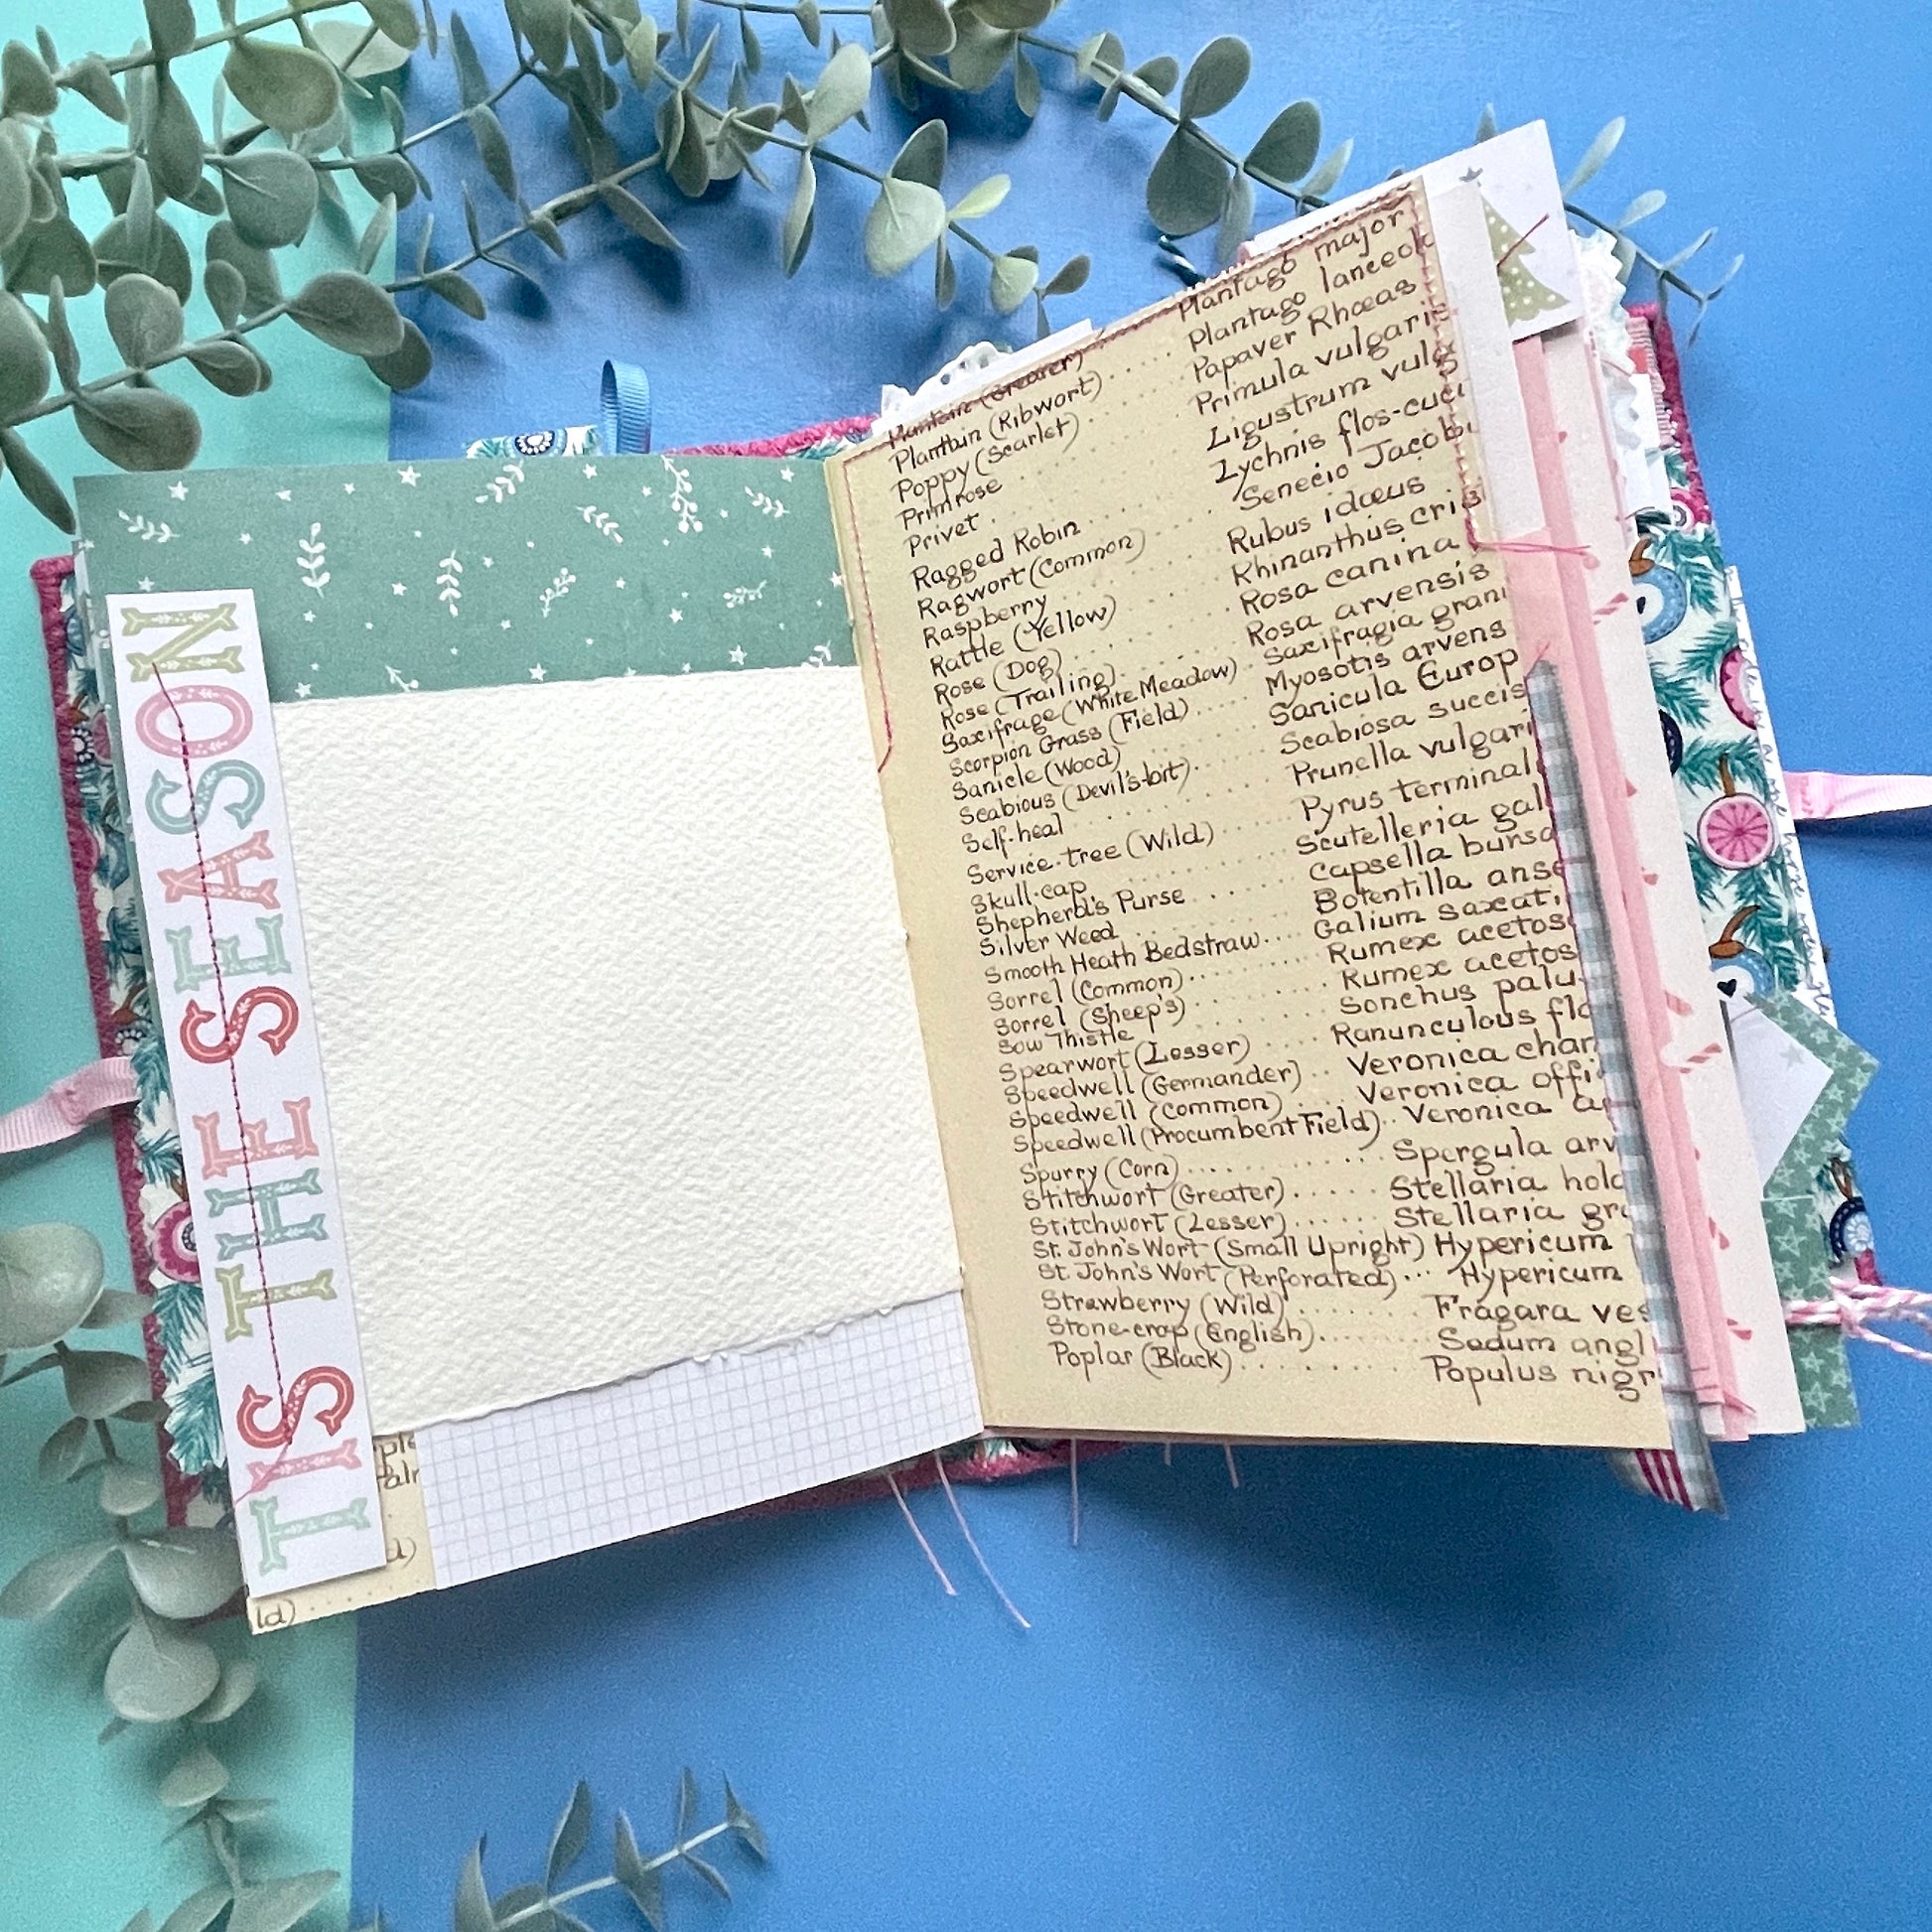 TIS THE SEASON
Plantain (Greater) Plantago major
Plantain (Ribwort) .... Plantago lanceol
Poppy (Scarlet) .... Papaver Rhœas
Primrose .... Primula vulgaris
Privet .... Ligustrum vulg
Ragged Robin .... Lychnis flos-cuc
Ragwort (Common) .... Senecio Jacob
Raspberry .... Rubus idæus
Rattle (Yellow) .... Rhinanthus cris
Rose (Dog) .... Rosa canina
Rose (Trailing) .... Rosa arvensis
Saxifrage (White Meadow) . Saxifragia grani
Scorpion Grass (Field) .... Myosotis arvens
Sanicle (Wood) .... Sanicula Europ
Scabious (Devil's-bit) .... Scabiosa succis
Self-heal .... Prunella vulgari
Service-tree (Wild) .... Pyrus terminal
Skull-cap .... Scutelleria gal
Shepherd's Purse .... Capsella bursa
Silver Weed .... Botentilla anse
Smooth Heath Bedstraw .... Galium saxati
Sorrel (Common) .... Rumex acetos
Sorrel (Sheep's) .... Rumex acetos
Sow Thistle .... Sonchus palu
Spearwort (Lesser) .... Ranunculous fla
Speedwell (Germander) .. Veronica cham
Speedwell (Common) .... Veronica offi
Speedwell (Procumbent Field) .. Veronica a
Spurry (Corn) .... Spergula arv
Stitchwort (Greater) .... Stellaria hol
Stitchwort (Lesser) .... Stellaria gr
St. John's Wort (Small Upright) Hypericum
St. John's Wort (Perforated) ... Hypericum
Strawberry (Wild) .... Fragara ves
Stone-crop (English) .... Sedum angl
Poplar (Black) .... Populus nigr
ld) ....